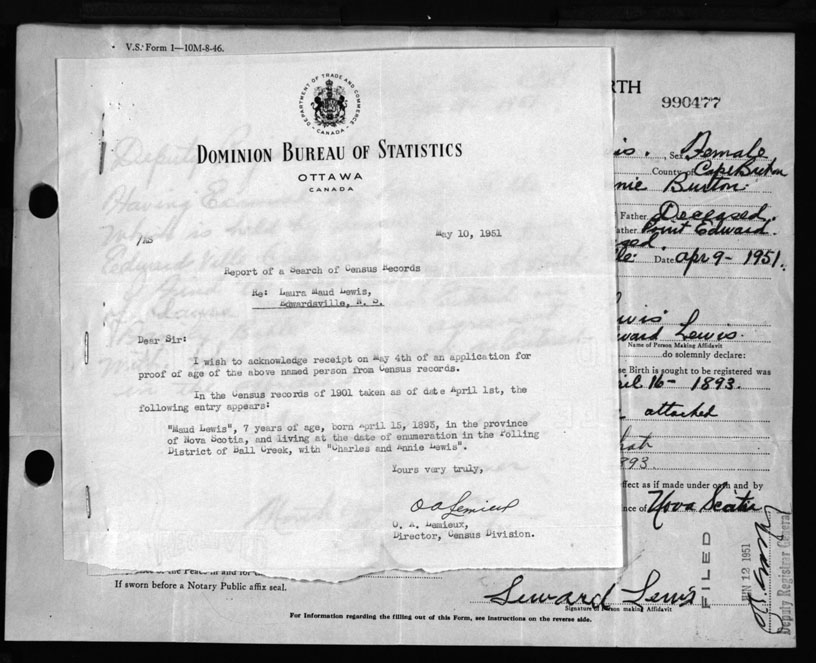 V.S. Form 1—10M-8-46.
DEPARTMENT OF TRADE AND COMMERCE
• CANADA •
DOMINION BUREAU OF STATISTICS
OTTAWA
CANADA
May 10, 1951
Report of a Search of Census Records
Re: Laura Maud Lewis,
Edwardsville, N. S.
Dear Sir:
I wish to acknowledge receipt on May 4th of an application for
proof of age of the above named person from Census records.
In the Census records of 1901 taken as of date April 1st, the
following entry appears:
"Maud Lewis", 7 years of age, born April 15, 1893, in the province
of Nova Scotia, and living at the date of enumeration in the Polling
District of Ball Creek, with "Charles and Annie Lewis".
Yours very truly,
O A Lemieux
O. A. Lemieux,
Director, Census Division.
RTH
990477
is. Sex Female
County of Cape Breton
nie Burton.
Father Deceased.
ather Point Edward.
sed.
lle: Date Apr 9 - 1951.
Lewis
ward Lewis.
Name of Person Making Affidavit
do solemnly declare:
se Birth is sought to be registered was
ril 16 - 1893.
attached
893
ffect as if made under oath and by
nce of Nova Scotia
FILED
JUN 12 1951
Deputy Registrar General
If sworn before a Notary Public affix seal.
Seward Lewis
Signature of Person making Affidavit
For Information regarding the filling out of this Form, see Instructions on the reverse side.